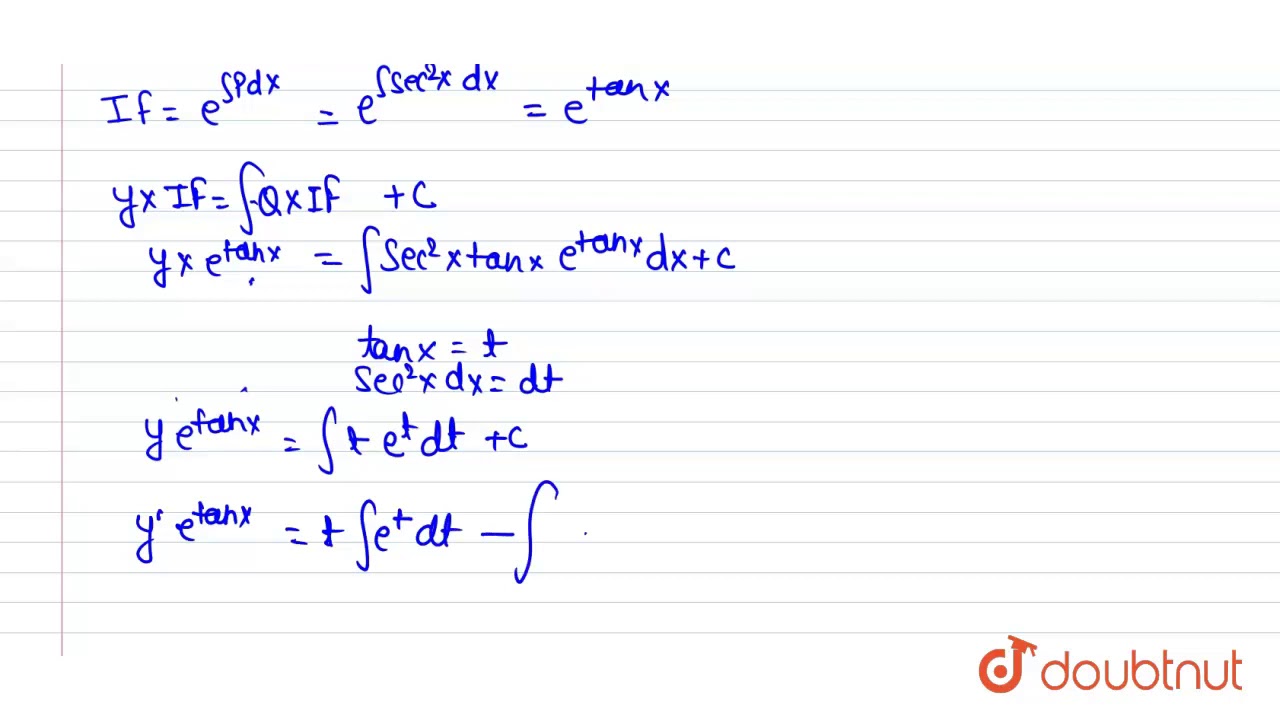 If = e^∫Pdx = e^∫Sec²x dx = e^tanx
y x If = ∫Q x If + C
y x e^tanx = ∫Sec²x tanx e^tanx dx + C
tanx = t
Sec²x dx = dt
y e^tanx = ∫t e^t dt + C
y e^tanx = t ∫e^t dt - ∫
doubtnut